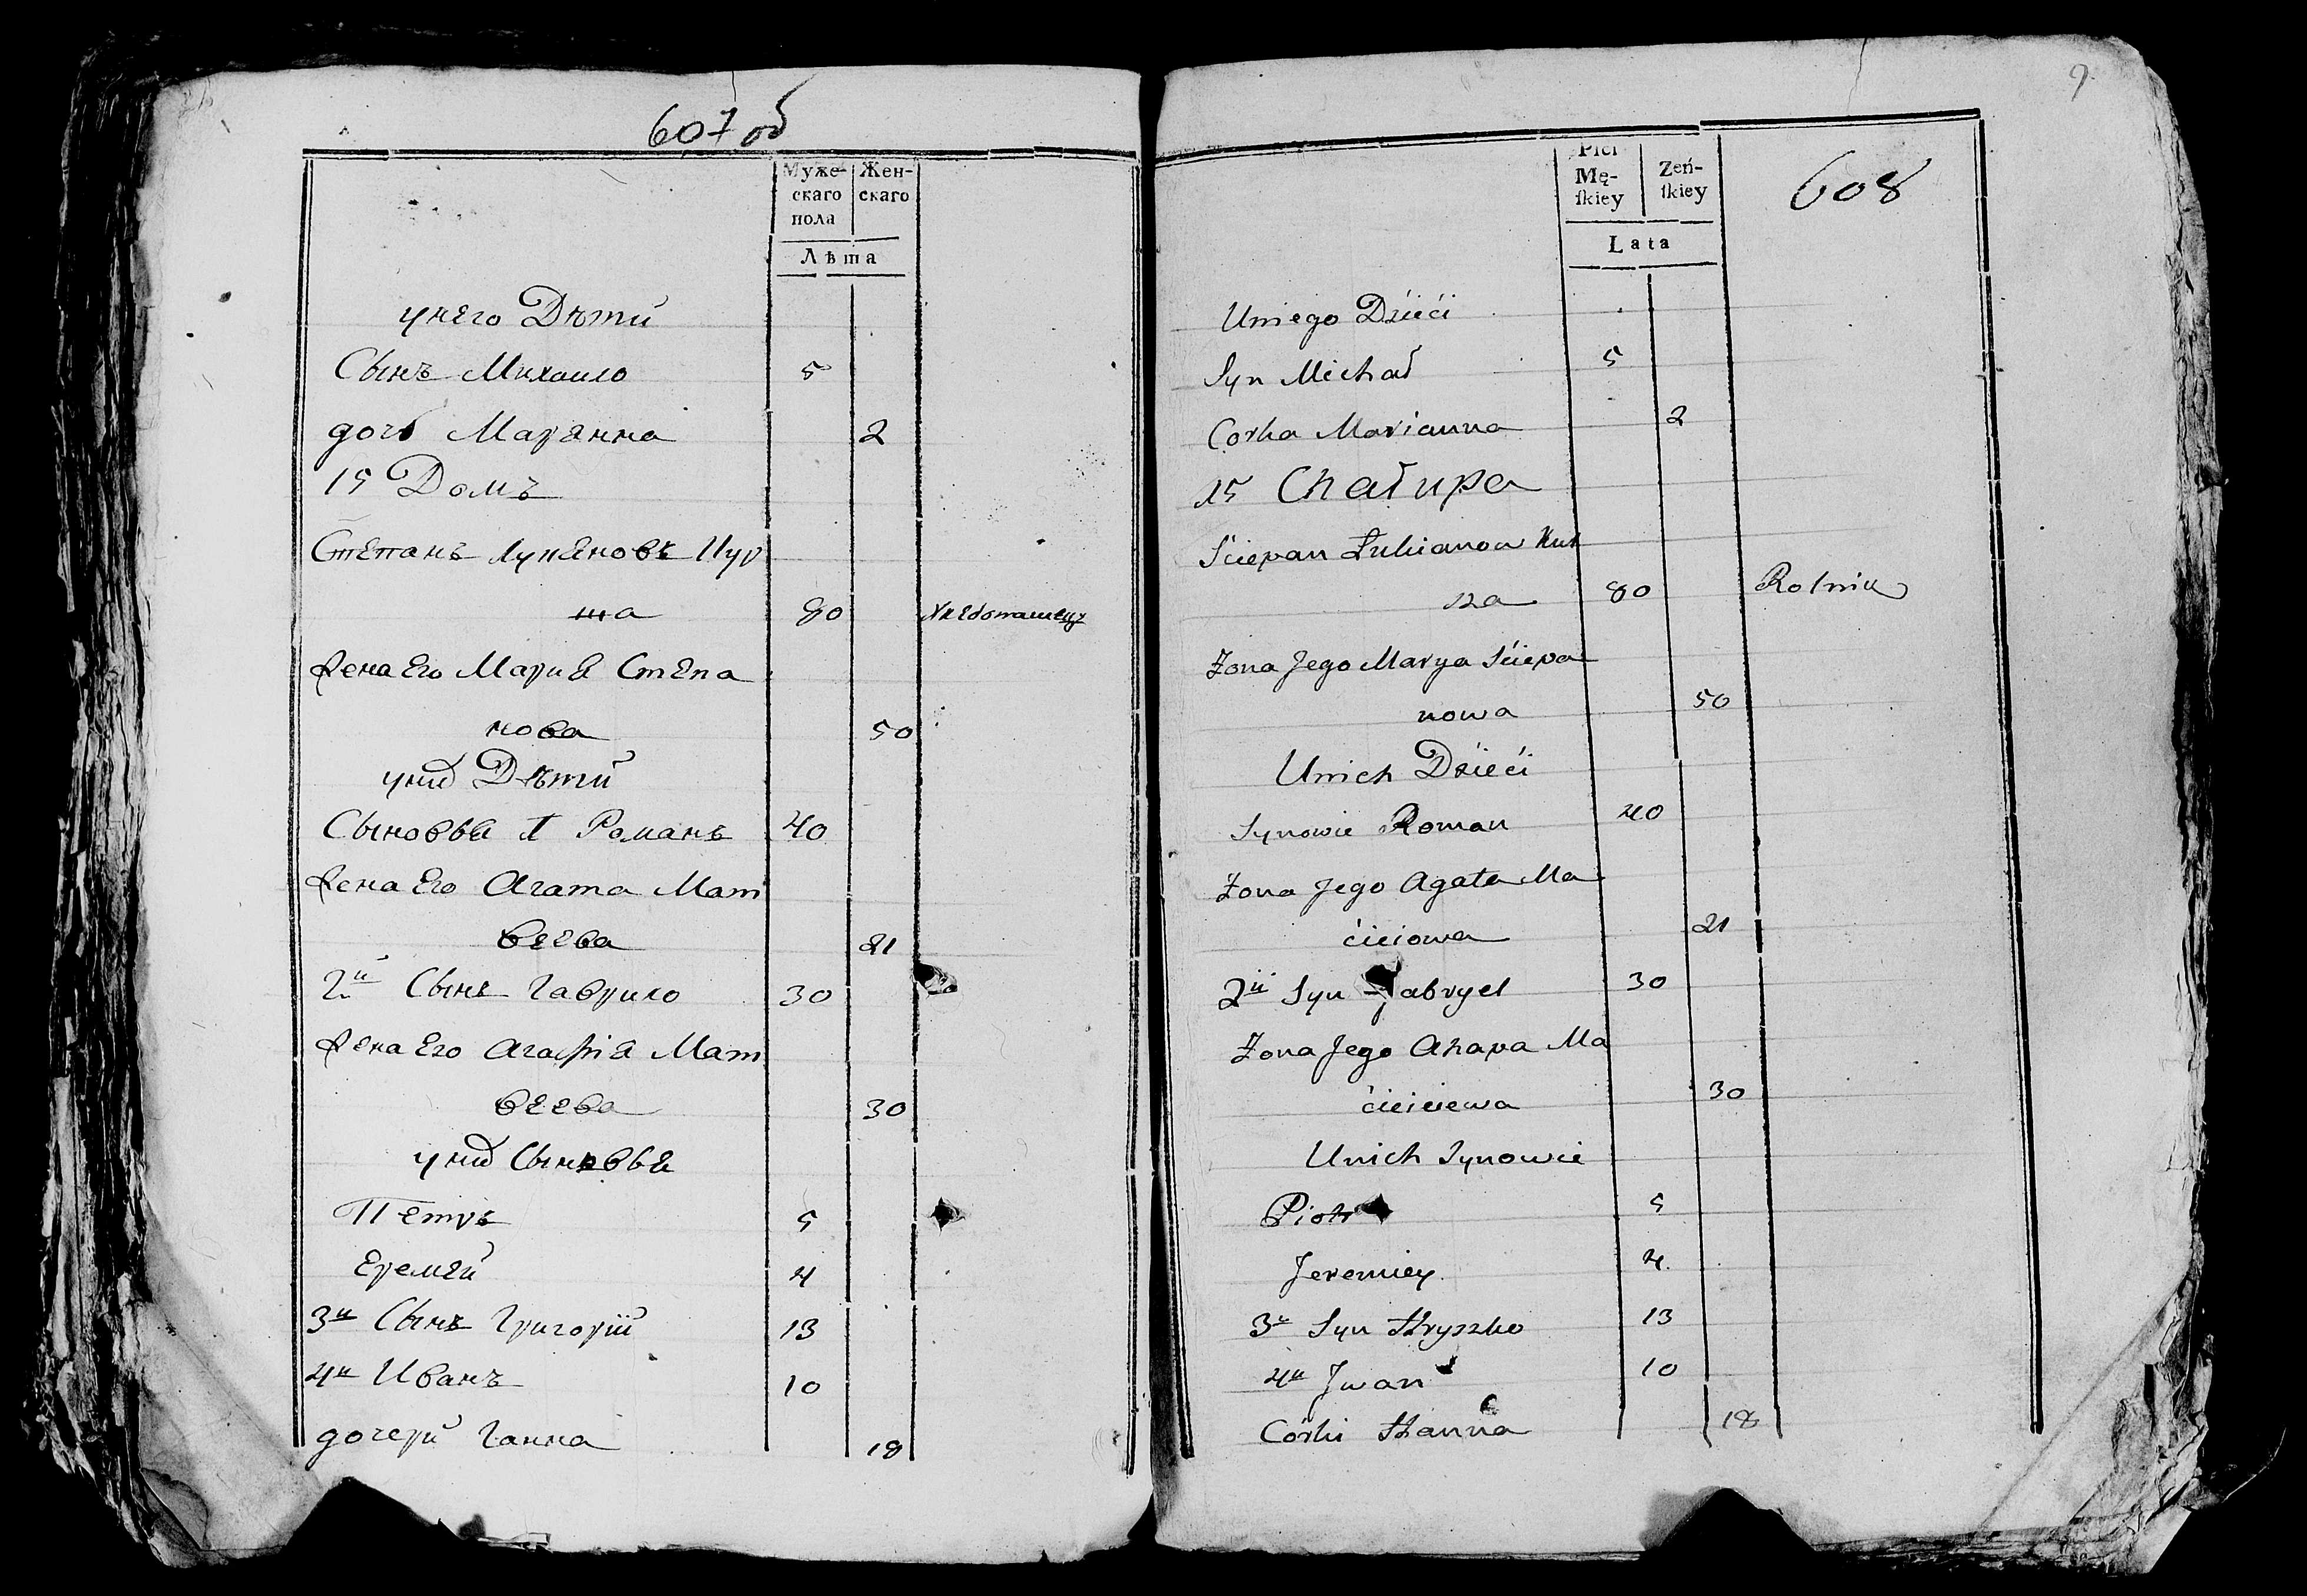 607 об
Муже-
скаго
пола
Жен-
скаго
Лѣта
у него Дѣти
Сынъ Михаило 5
дочь Марянна 2
15 Домъ
Степанъ Лукяновъ Кур
ша 80
Жена Его Мария Степа
нова 50
у них Дѣти
Сыновья 1 Романъ 40
Жена Его Агата Мат
веева 21
2й Сынъ Гаврило 30
Жена Его Агафія Мат
веева 30
у них Сыновья
Петръ 5
Еремей 4
3й Сынъ Григорій 13
4й Иванъ 10
дочери Ганна 18
9
Płci
Mę-
ſkiey
Żeń-
ſkiey
608
Lata
Uniego Dźieći
Syn Michał 5
Corka Marianna 2
15 Chałupa
Śćiepan Łukianow Kur
sza 80 Rolnik
Żona Jego Marya Śćiepa
nowa 50
Unich Dźieći
Synowie Roman 40
Żona Jego Agata Ma
ćieiowa 21
2ii Syn Gabryel 30
Żona Jego Ahapa Ma
ćieiewa 30
Unich Synowie
Piotr 5
Jeremiey 4
3ii Syn Hryszko 13
4ii Jwan 10
Córki Hanna 18